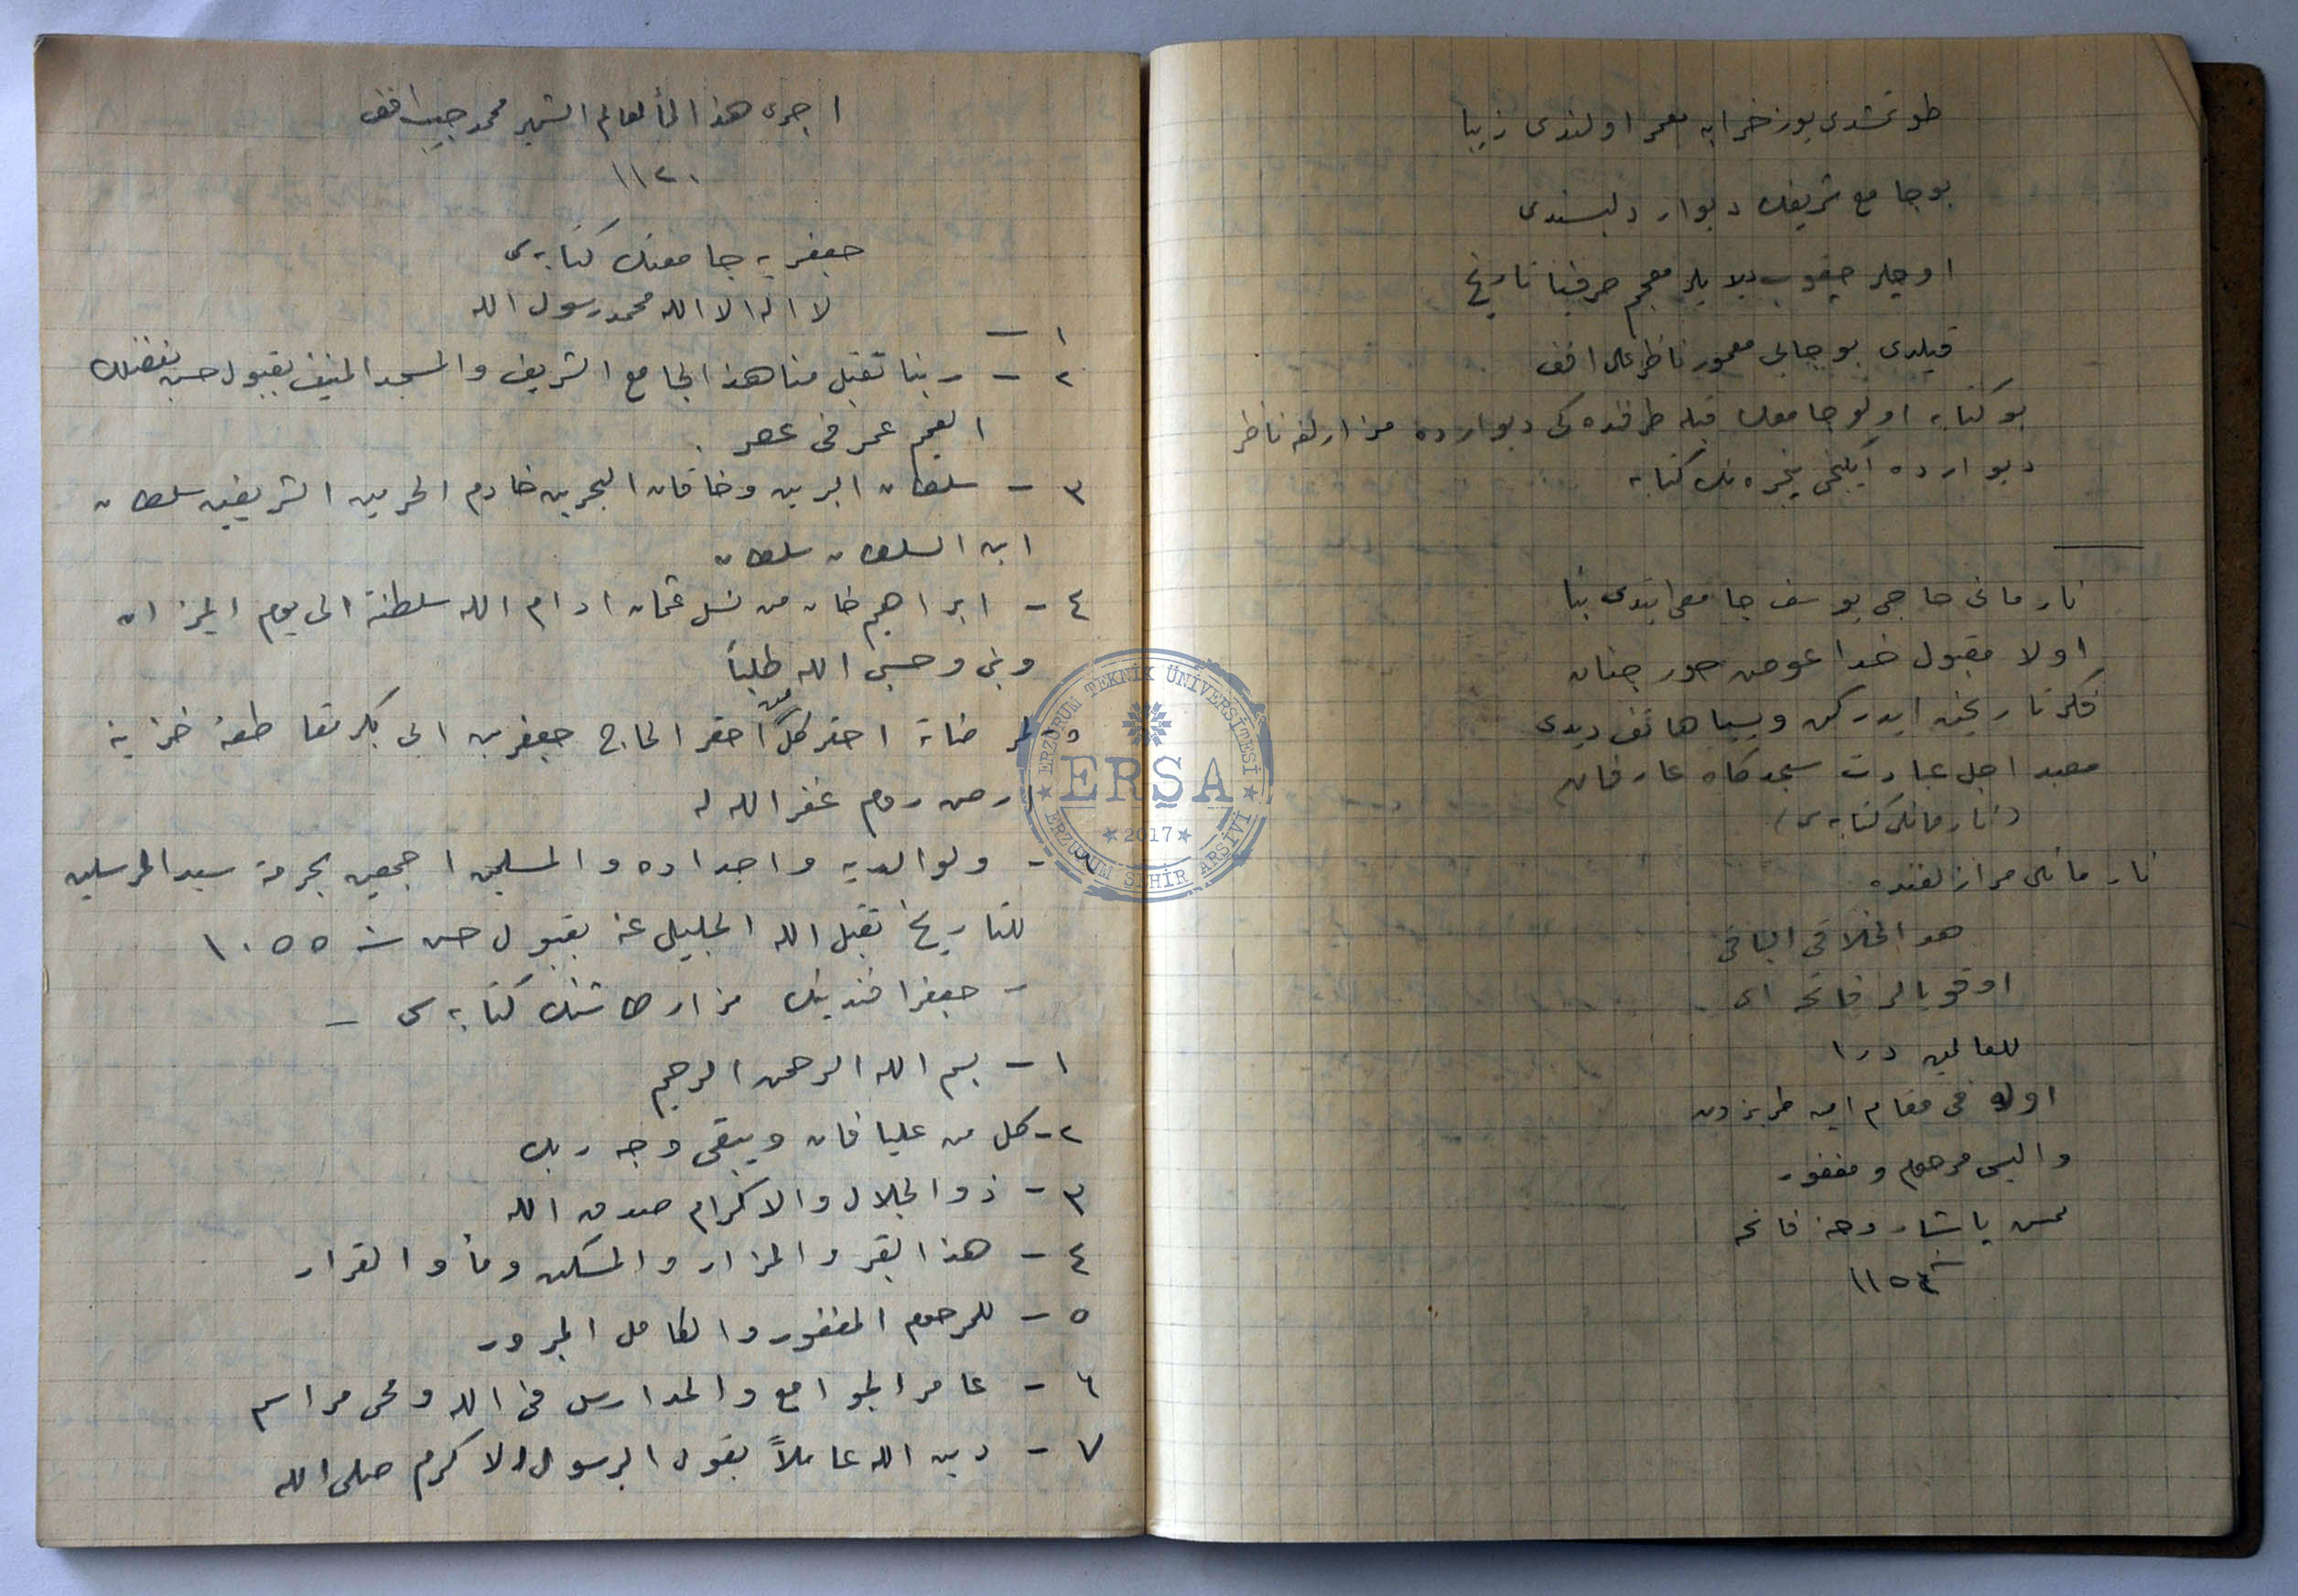 طوتمشدى يوز خرابه معمر اولندى زيبا
بو جامع شريفك ديوار دلپسندى
اوچلر چيقوب ديلر معجم حرفيا تاريخ
قيلدى بو جايى معمور ناظر على افندى
بو كتابه اولو جامعك قبله طرفنده كى ديوارده مزارلغه ناظر
ديوارده ايكنجى پنجره نك كتابه
نارمانى حاجى يوسف جامعى ايتدى بنا
اولا مقبول خدا عوض حور جنان
فكر تاريخن ايدركن ويسيا هاتف ديدى
معبد اجل عبادت سجده كاه عارفان
(نارمانلى كتابه سى)
نارمانلى مزارلغنده
هو الخلاق الباقى
اوقويالر فاتحه اى
للعالمين درا
اوله فى مقام امين طربزون
واليسى مرحوم و مغفور
حسن پاشا روحنه فاتحه
سنه ١١٥٤
اجرى هذا الماء العالم الشهير محمد حبيب افندى
١١٢٠
جعفريه جامعنك كتابه سى
١ - لا اله الا الله محمد رسول الله
٢ - ربنا تقبل منا هذا الجامع الشريف والمسجد المنيف بقبول حسن بفضلك
العميم عمر فى عصر
٣ - سلطان البرين وخاقان البحرين خادم الحرمين الشريفين سلطان
ابن السلطان سلطان
٤ - ابراهيم خان من نسل عثمان ادام الله سلطنة الى يوم الميزان
وبنى وحسبى الله طلباً
٥ - لمرضاة احقر كل من احقر الحاج جعفر بن ابى بكر مقاطعه خزينة
ارض روم غفر الله له
- ولوالديه واجداده والمسلمين اجمعين بحرمة سيد المرسلين
للتاريخ تقبل الله الجليل عنه بقبول حسن سنه ١٠٥٥
- جعفر افندينك مزار طاشنك كتابه سى -
١ - بسم الله الرحمن الرحيم
٢ - كل من عليها فان ويبقى وجه ربك
٣ - ذو الجلال والاكرام صدق الله
٤ - هذا القبر والمزار والمسكن ومأوا القرار
٥ - للمرحوم المغفور والكامل المبرور
٦ - عامر الجوامع والمدارس فى الله ومحى مراسم
٧ - دين الله عاملاً بقول الرسول الاكرم صلى الله
ERZURUM TEKNİK ÜNİVERSİTESİ
ERŞA
2017
ERZURUM ŞEHİR ARŞİVİ